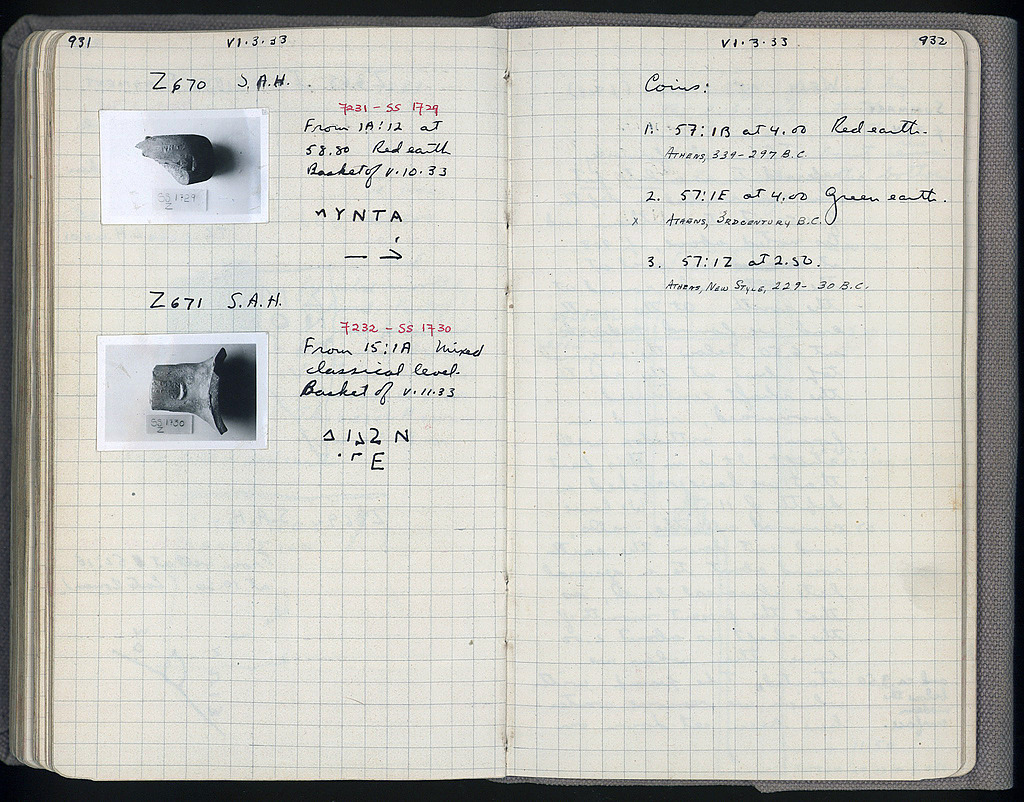 931
VI.3.33
Z670 S.A.H.
7231 – SS 1729
From 1A:12 at
58.80 Red earth
Basket of V.10.33
ΥΝΤΑ
SS 1729
Z
Z671 S.A.H.
7232 – SS 1730
From 15:1A Mixed
classical level.
Basket of V.11.33
Ν
Ε
SS 1730
Z
VI.3.33
932
Coins:
1. 57:1B at 4.00 Red earth.
ATHENS, 339–297 B.C.
2. 57:1E at 4.00 Green earth.
x ATHENS, 3RD CENTURY B.C.
3. 57:1Z at 2.50.
ATHENS, NEW STYLE, 229–30 B.C.